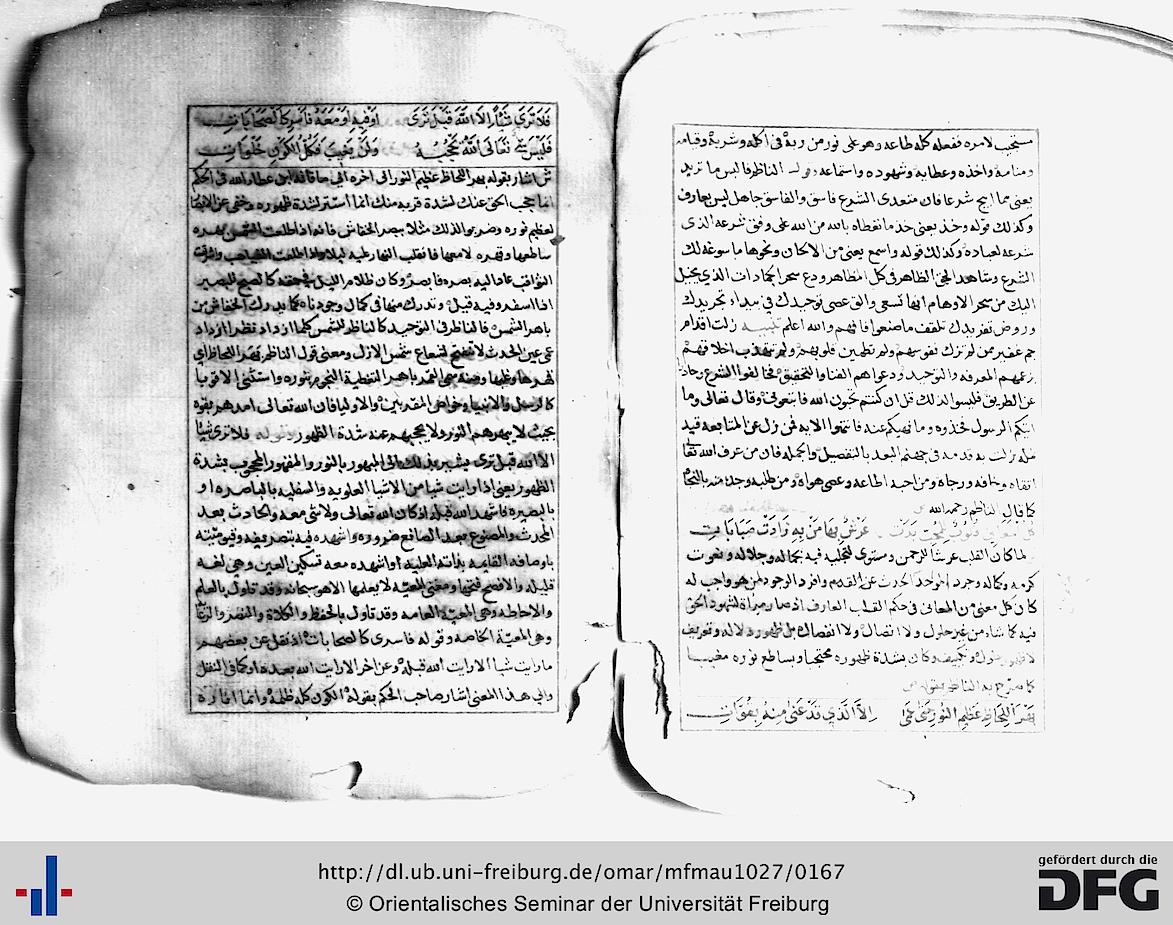 مستجب لامره ففعله كله طاعه وهو على نور من ربه في اكله وشربه وقيامه
ومنامه واخذه وعطايه وشهوده واستماعه الناظر فالبس ما تريد
يعني مما ابيح شرعا فان متعدى الشرع فاسق والفاسق جاهل ليس بعارف
وكذلك قوله وخذ يعني خذ ما تعطاه بالله من الله على وفق شرعه الذى
شرعه لعباده وكذلك قوله واسمع يعني من الالحان ونحوها ما سوغه لك
الشرع وشاهد الحق الظاهر في كل المظاهر ودع سحر الجمادات الذي يخيل
اليك من سحر الاوهام انها تسعى والق عصى توحيدك في بيداء تجريدك
وروض تفريدك تلقف ما صنعوا فافهم والله اعلم تنبيه زلت اقدام
جم غفير ممن لم تزك نفوسهم ولم تطمين قلوبهم ولم تتهذب اخلاقهم
بزعمهم المعرفه والتوحيد ودعواهم الفنا والتحقيق فخالفوا الشرع
عن الطريق فلبسوا لذلك قل ان كنتم تحبون الله فاتبعوني وقال تعالى وما
اتيكم الرسول فخذوه وما نهيكم عنه فانتهوا الايه فمن زل عن المتابعه قيد
زلت به قدمه في جهنم البعد بالتفصيل والجمله فان من عرف الله
اتقاه وخافه ورجاه ومن احبه اطاعه وعصى هواه ومن طلبه وجده
كما قال الناظم رحمه الله
عرش بها من به زادت صباباتي
لما كان القلب عرشا للرحمن ومستوى لتجليه فيه بجماله وجلاله ونعوت
كرمه وكماله وجرد الموحد الحدث عن القدم وافرد الوجود لمن هو واجب له
كان كل معنى من المعاني في حكم القلب العارف اذ صار مراة لشهود الحق
فيه كما شاء من غير حلول ولا اتصال ولا انفصال بل ظهور دلاله وتعريف
وكان بشدة ظهوره محتجبا وبساطع نوره مغيبا
كما صرح به الناظم بقوله
بهر اللحاظ عظيم النور حتى الا الذي قد عنى منه بقوات
فلا ترى شيئا الا الله قبل ترى او فيه او معه فاسر كالصحابات
فليس شيء تعالى الله يحجبه ولن يغيب فكل الكون
ثم اشار بقوله بهر اللحاظ عظيم النور الى اخره الى ما قاله ابن عطاء الله في الحكم
انما حجب الحق عنك لشدة قربه منك انما استتر لشدة ظهوره وخفى عن الابصار
لعظيم نوره وضربوا لذلك مثلا ببصر الخفاش فانه اذا طلعت الشمس بهره
ساطعها وقهره لامعها فانقلب النهار عليه ليلا واذا اطلعت واشرقت
الثواقب عاد اليه بصره فابصر وكان ظلام الليل في حقه كالصبح للبصير
اذا اسفر وفيه قيل وندرك منها في كمال وجودنا كما يدرك الخفاش من
باهر الشمس فالناظر في التوحيد كالناظر للشمس كلما ازداد نظرا ازداد
عمى عين الحدث لا تنفتح لشعاع شمس الازل ومعنى قول الناظم بهر اللحاظ اي
قهرها وغلبها ومنه سمى القمر باهرا لتغطية النجوم بنوره واستثنى الاقويا
كالرسل والانبيا وخواص المقربين والاوليا فان الله تعالى امدهم بقوه
بحيث لا يبهرهم النور ولا يحجبهم عنه شدة الظهور وقوله فلا ترى شيئا
الا الله قبل ترى يشير بذلك الى المبهور بالنور والمقهور المحجوب بشدة
الظهور يعني اذا رايت شيا من الاشيا العلويه والسفليه بالباصره او
بالبصيره فاشهد الله قبله اذ كان الله تعالى ولا شي معه والحادث بعد
المحدث والمصنوع بعد الصانع ضروره واشهده فيه بتصريفه وقيوميته
باوصافه القايمه بذاته العليه او اشهده معه تسكين العين وهي لغه
قليله والافصح فتحها ومعنى المعيه لا يعلمها الا هو سبحانه وقد تاول بالعلم
والاحاطه وهي المعيه العامه وقد تاول بالحفظ والكلاة والنصر
وهي المعية الخاصه وقوله فاسرى كالصحابات اذ نقل عن بعضهم
ما رايت شيا الا رايت الله قبله وعن اخر الا رايت الله بعده او كما في النقل
والى هذا المعنى اشار صاحب الحكم بقوله الكون كله ظلمة وانما اناره
http://dl.ub.uni-freiburg.de/omar/mfmau1027/0167
© Orientalisches Seminar der Universität Freiburg
gefördert durch die
DFG